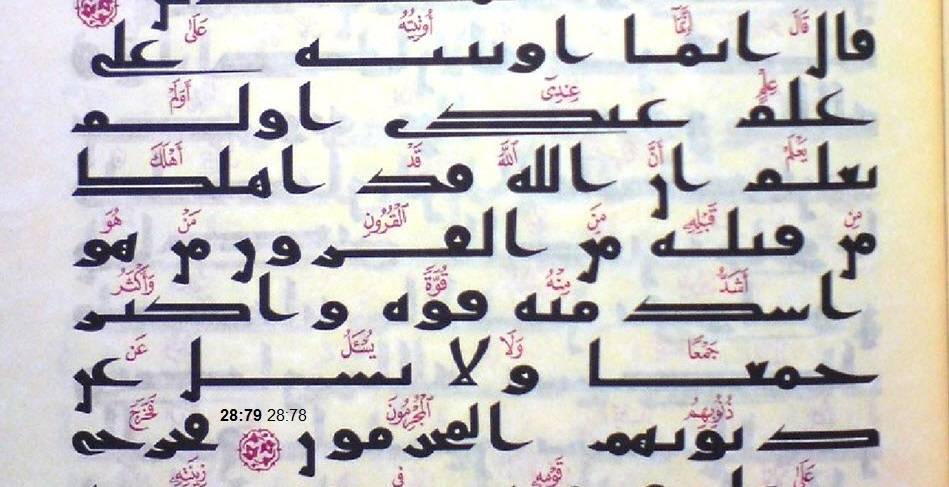 قَالَ إِنَّمَا أُوتِيتُهُ عَلَىٰ
قال انما اوتيته على
عِلْمٍ عِندِىٓ أَوَلَمْ
علم عندى اولم
يَعْلَمْ أَنَّ ٱللَّهَ قَدْ أَهْلَكَ
يعلم ان الله قد اهلك
مِن قَبْلِهِۦ مِنَ ٱلْقُرُونِ مَنْ هُوَ
من قبله من القرون من هو
أَشَدُّ مِنْهُ قُوَّةً وَأَكْثَرُ
اشد منه قوة و اكثر
جَمْعًا وَلَا يُسْـَٔلُ عَن
جمعا و لا يسل عن
ذُنُوبِهِمُ ٱلْمُجْرِمُونَ 28:79 28:78 فَخَرَجَ
ذنوبهم المجرمون فخرج
عَلَىٰ قَوْمِهِۦ فِى زِينَتِهِۦ